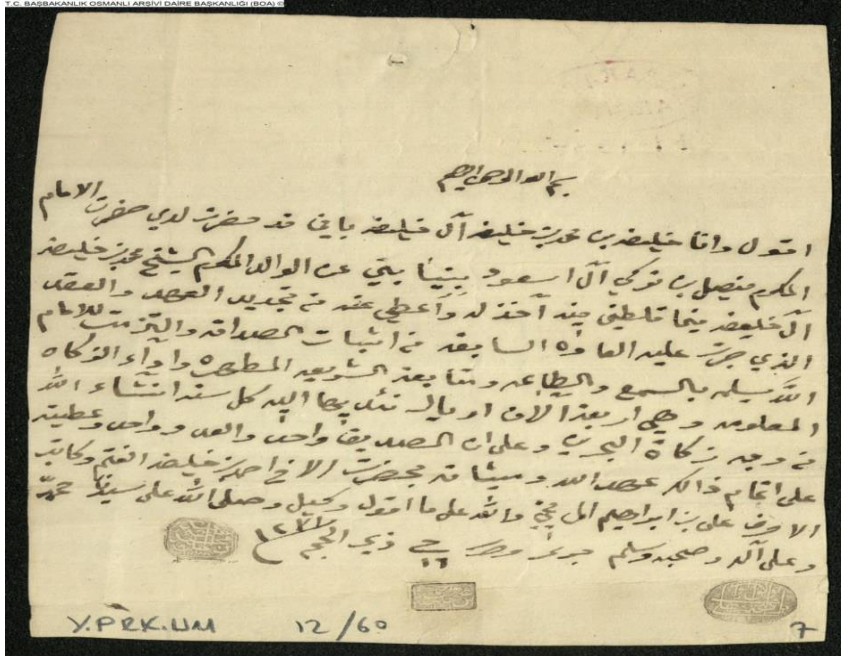 T.C. BAŞBAKANLIK OSMANLI ARŞİVİ DAİRE BAŞKANLIĞI (BOA) ©
بسم الله الرحمن الرحيم
اقول وانا خليفه بن محمد بن خليفه آل خليفه باني قد حضرت لدي حضرت الامام
المكرم فيصل بن تركي آل اسعود نيابتي عن الوالد المكرم الشيخ محمد بن خليفه
آل خليفه فيما آخذ له وأعطي عنه من تجديد العهد والعقد
الذي جرت عليه العاده السابقه من اثبات الصداقه والتزمت للامام
الله يسلمه بالسمع والطاعه ومتابعة الشريعه المطهره واداء الزكاه
المعلومه وهي اربعة الاف اريال نئديها اليه كل سنه انشاء الله
من وجه زكاة البحرين وعلى ان الصديق واحد والعدو واحد وعطيته
على اتمام ذالك عهد الله وميثاقه بحضرت الاخ احمد بن خليفه الغتم وكاتب
الاحرف علي بن ابراهيم والله على ما اقول وكيل وصلى الله على سيدنا محمد
وعلى آله وصحبه وسلم في ١٦ ذي الحجه ١٢٧٧
Y.PRK.UM 12/60 7